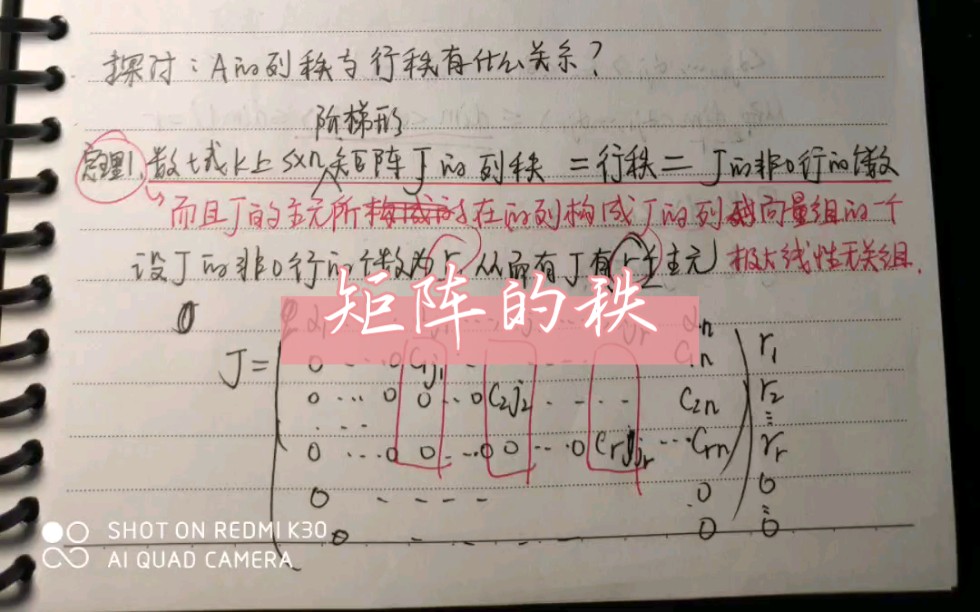 探讨：A的列秩与行秩有什么关系？
阶梯形
定理1.数域K上s×n矩阵J的列秩=行秩=J的非0行的个数
而且J的主元所在的列构成J的列向量组的一个
极大线性无关组.
设J的非0行的个数为r，从而有J有r个主元
矩阵的秩
0 … 0 C1j1 … C1n r1
J= 0 … 0 0 … 0 C2j2 … C2n r2
0 … 0 0 … 0 0 … 0 Crjr … Crn rr
0 … 0 0
0 … 0 0
SHOT ON REDMI K30
AI QUAD CAMERA